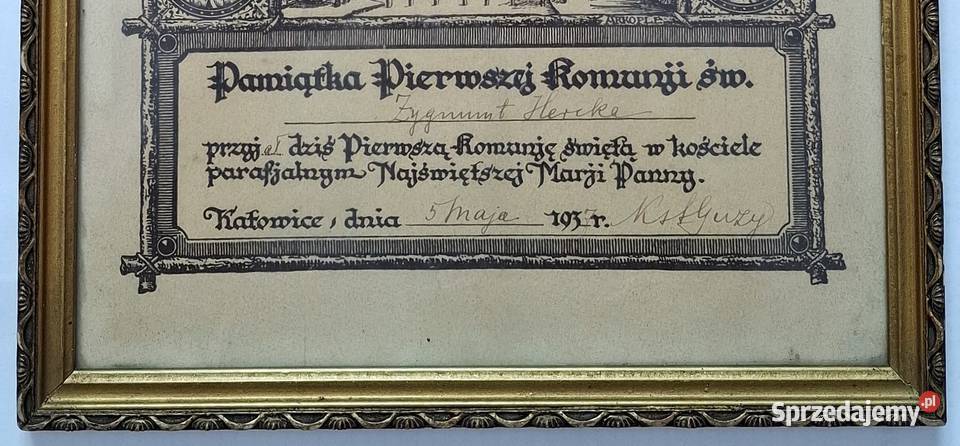 Pamiątka Pierwszej Komunji św.
Zygmunt Hercka
przyjął dziś Pierwszą Komunję świętą w kościele
parafjalnym Najświętszej Marji Panny.
Katowice, dnia 5 Maja 193 r.
Sprzedajemy.pl